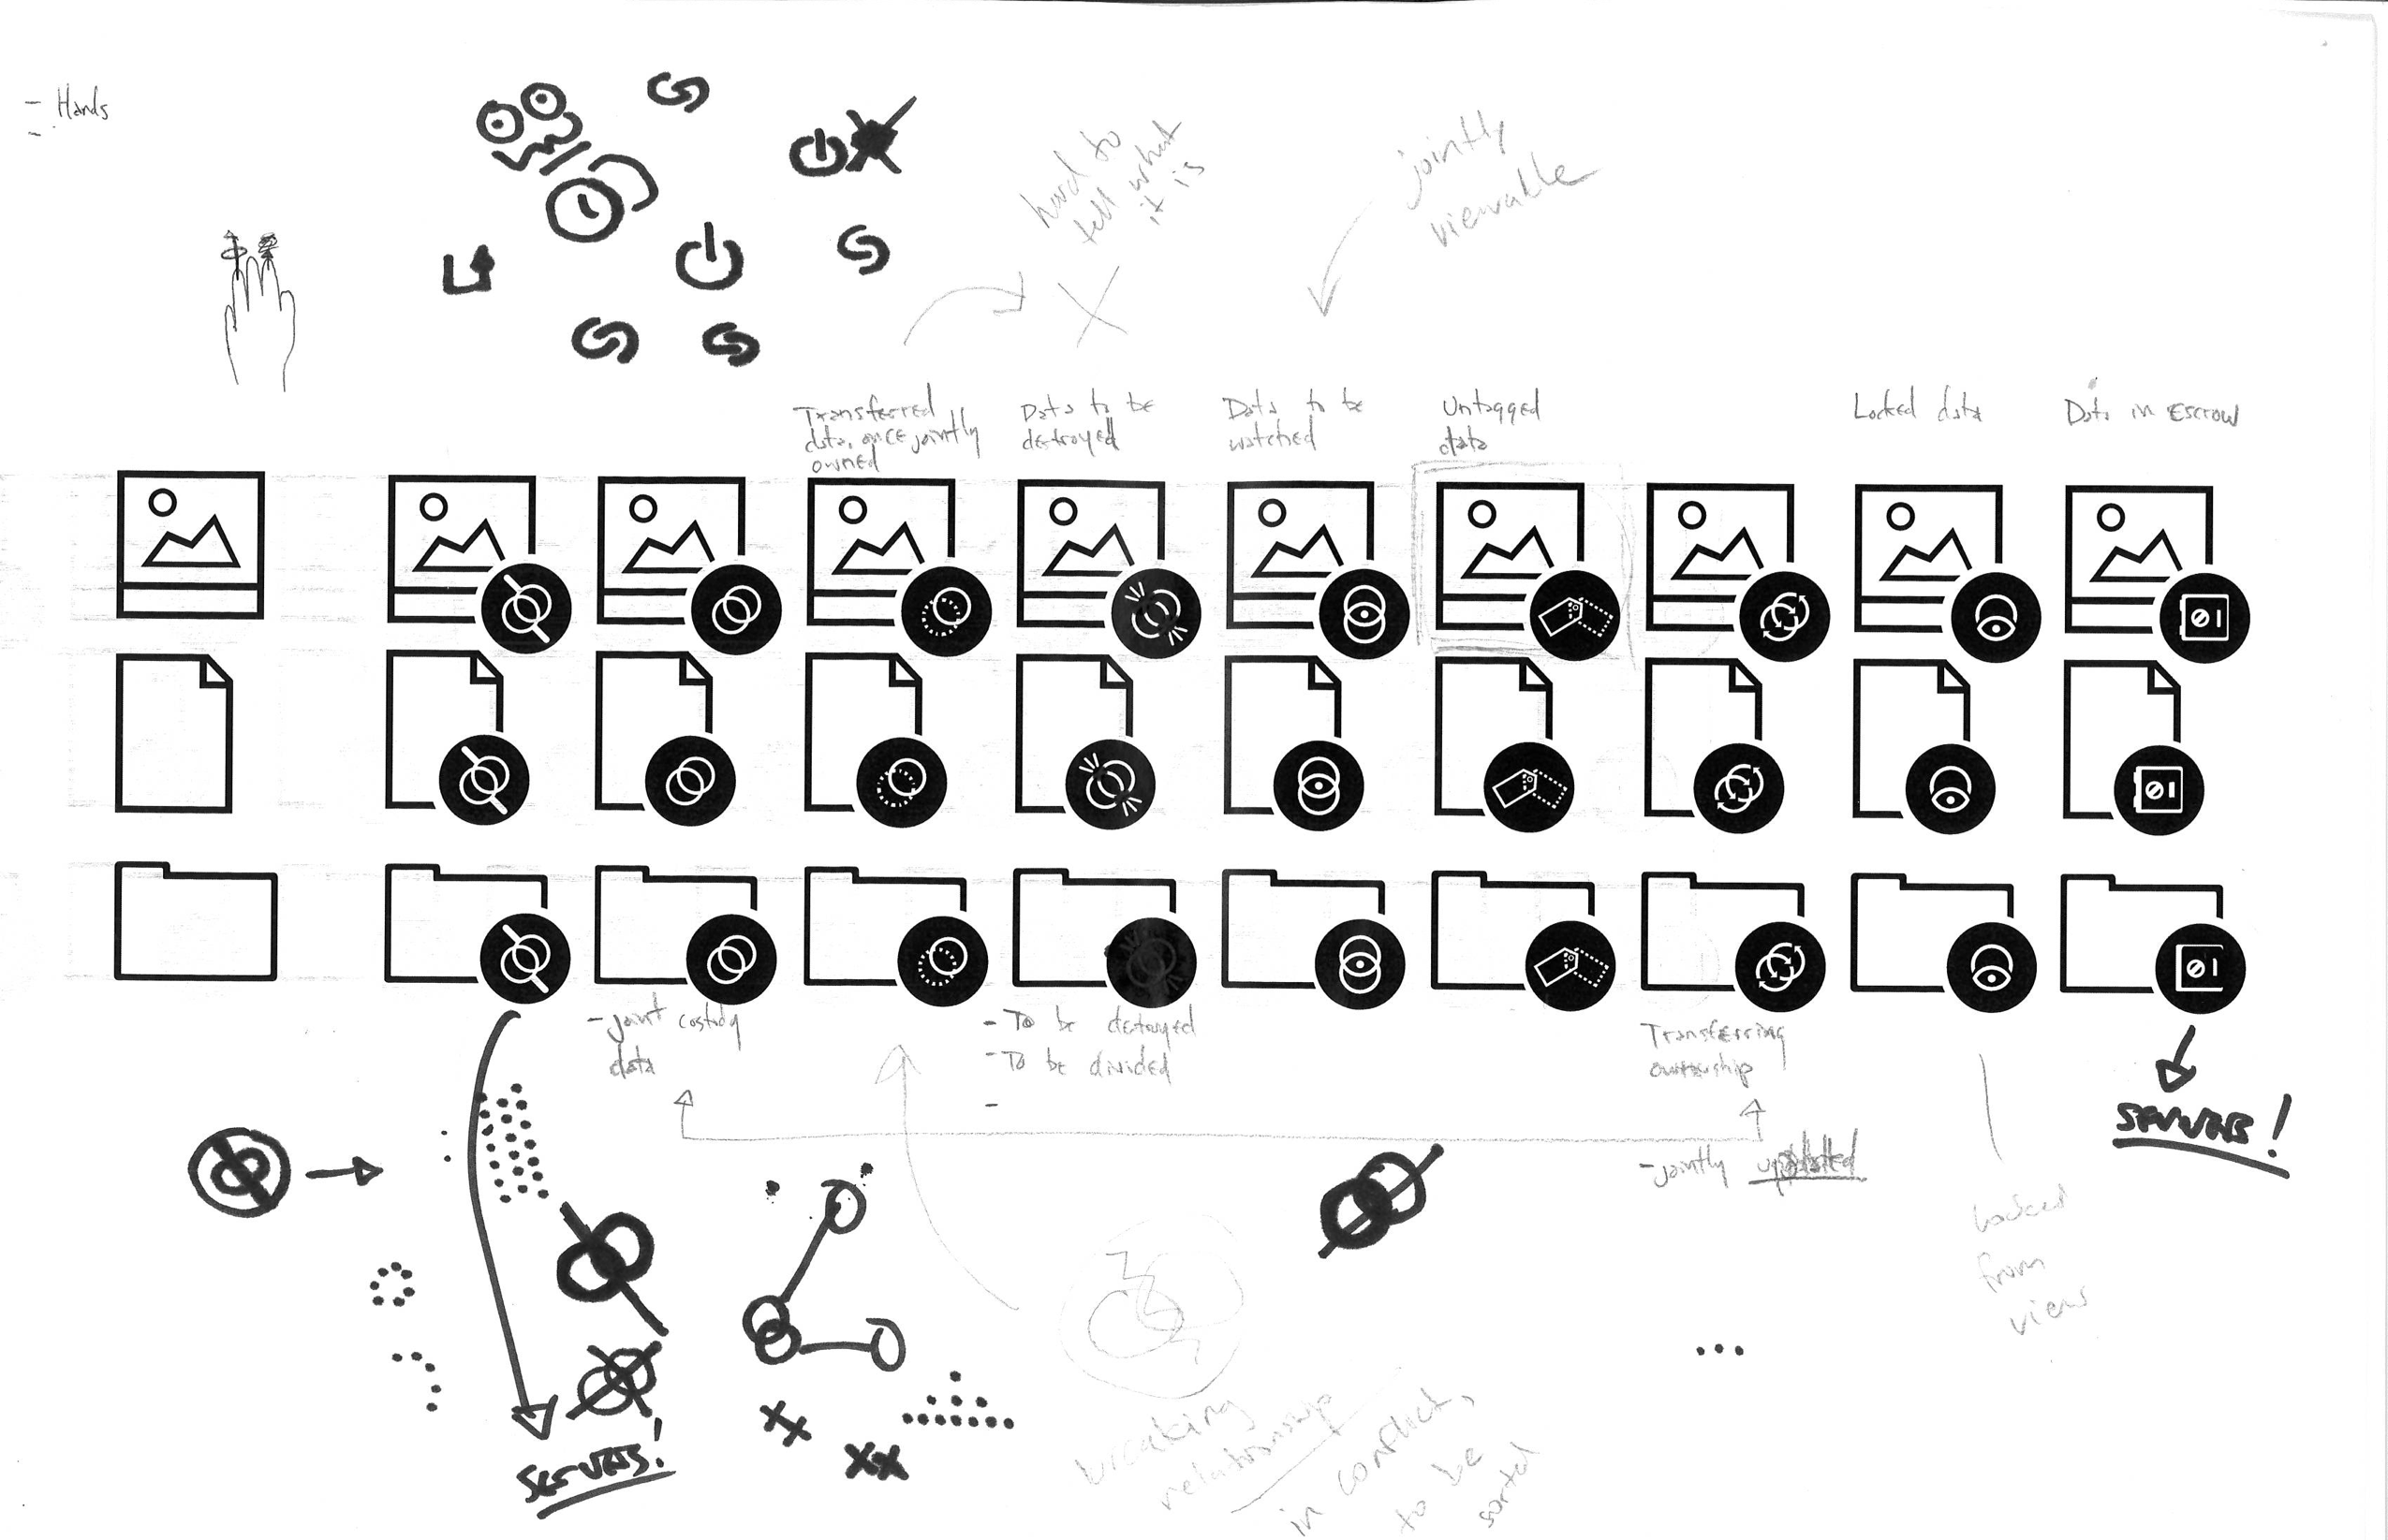 - Hands
-
hard to
tell what
it is
jointly
viewable
Transferred
data, once jointly
owned
Data to be
destroyed
Data to be
watched
Untagged
data
Locked data
Data in Escrow
- joint costidy
data
- To be destroyed
- To be divided
-
Transferring
ownership
- jointly updated
Locked
from
view
SERVERS!
SERVERS!
breaking
relationship
in conflict,
to be
sorted